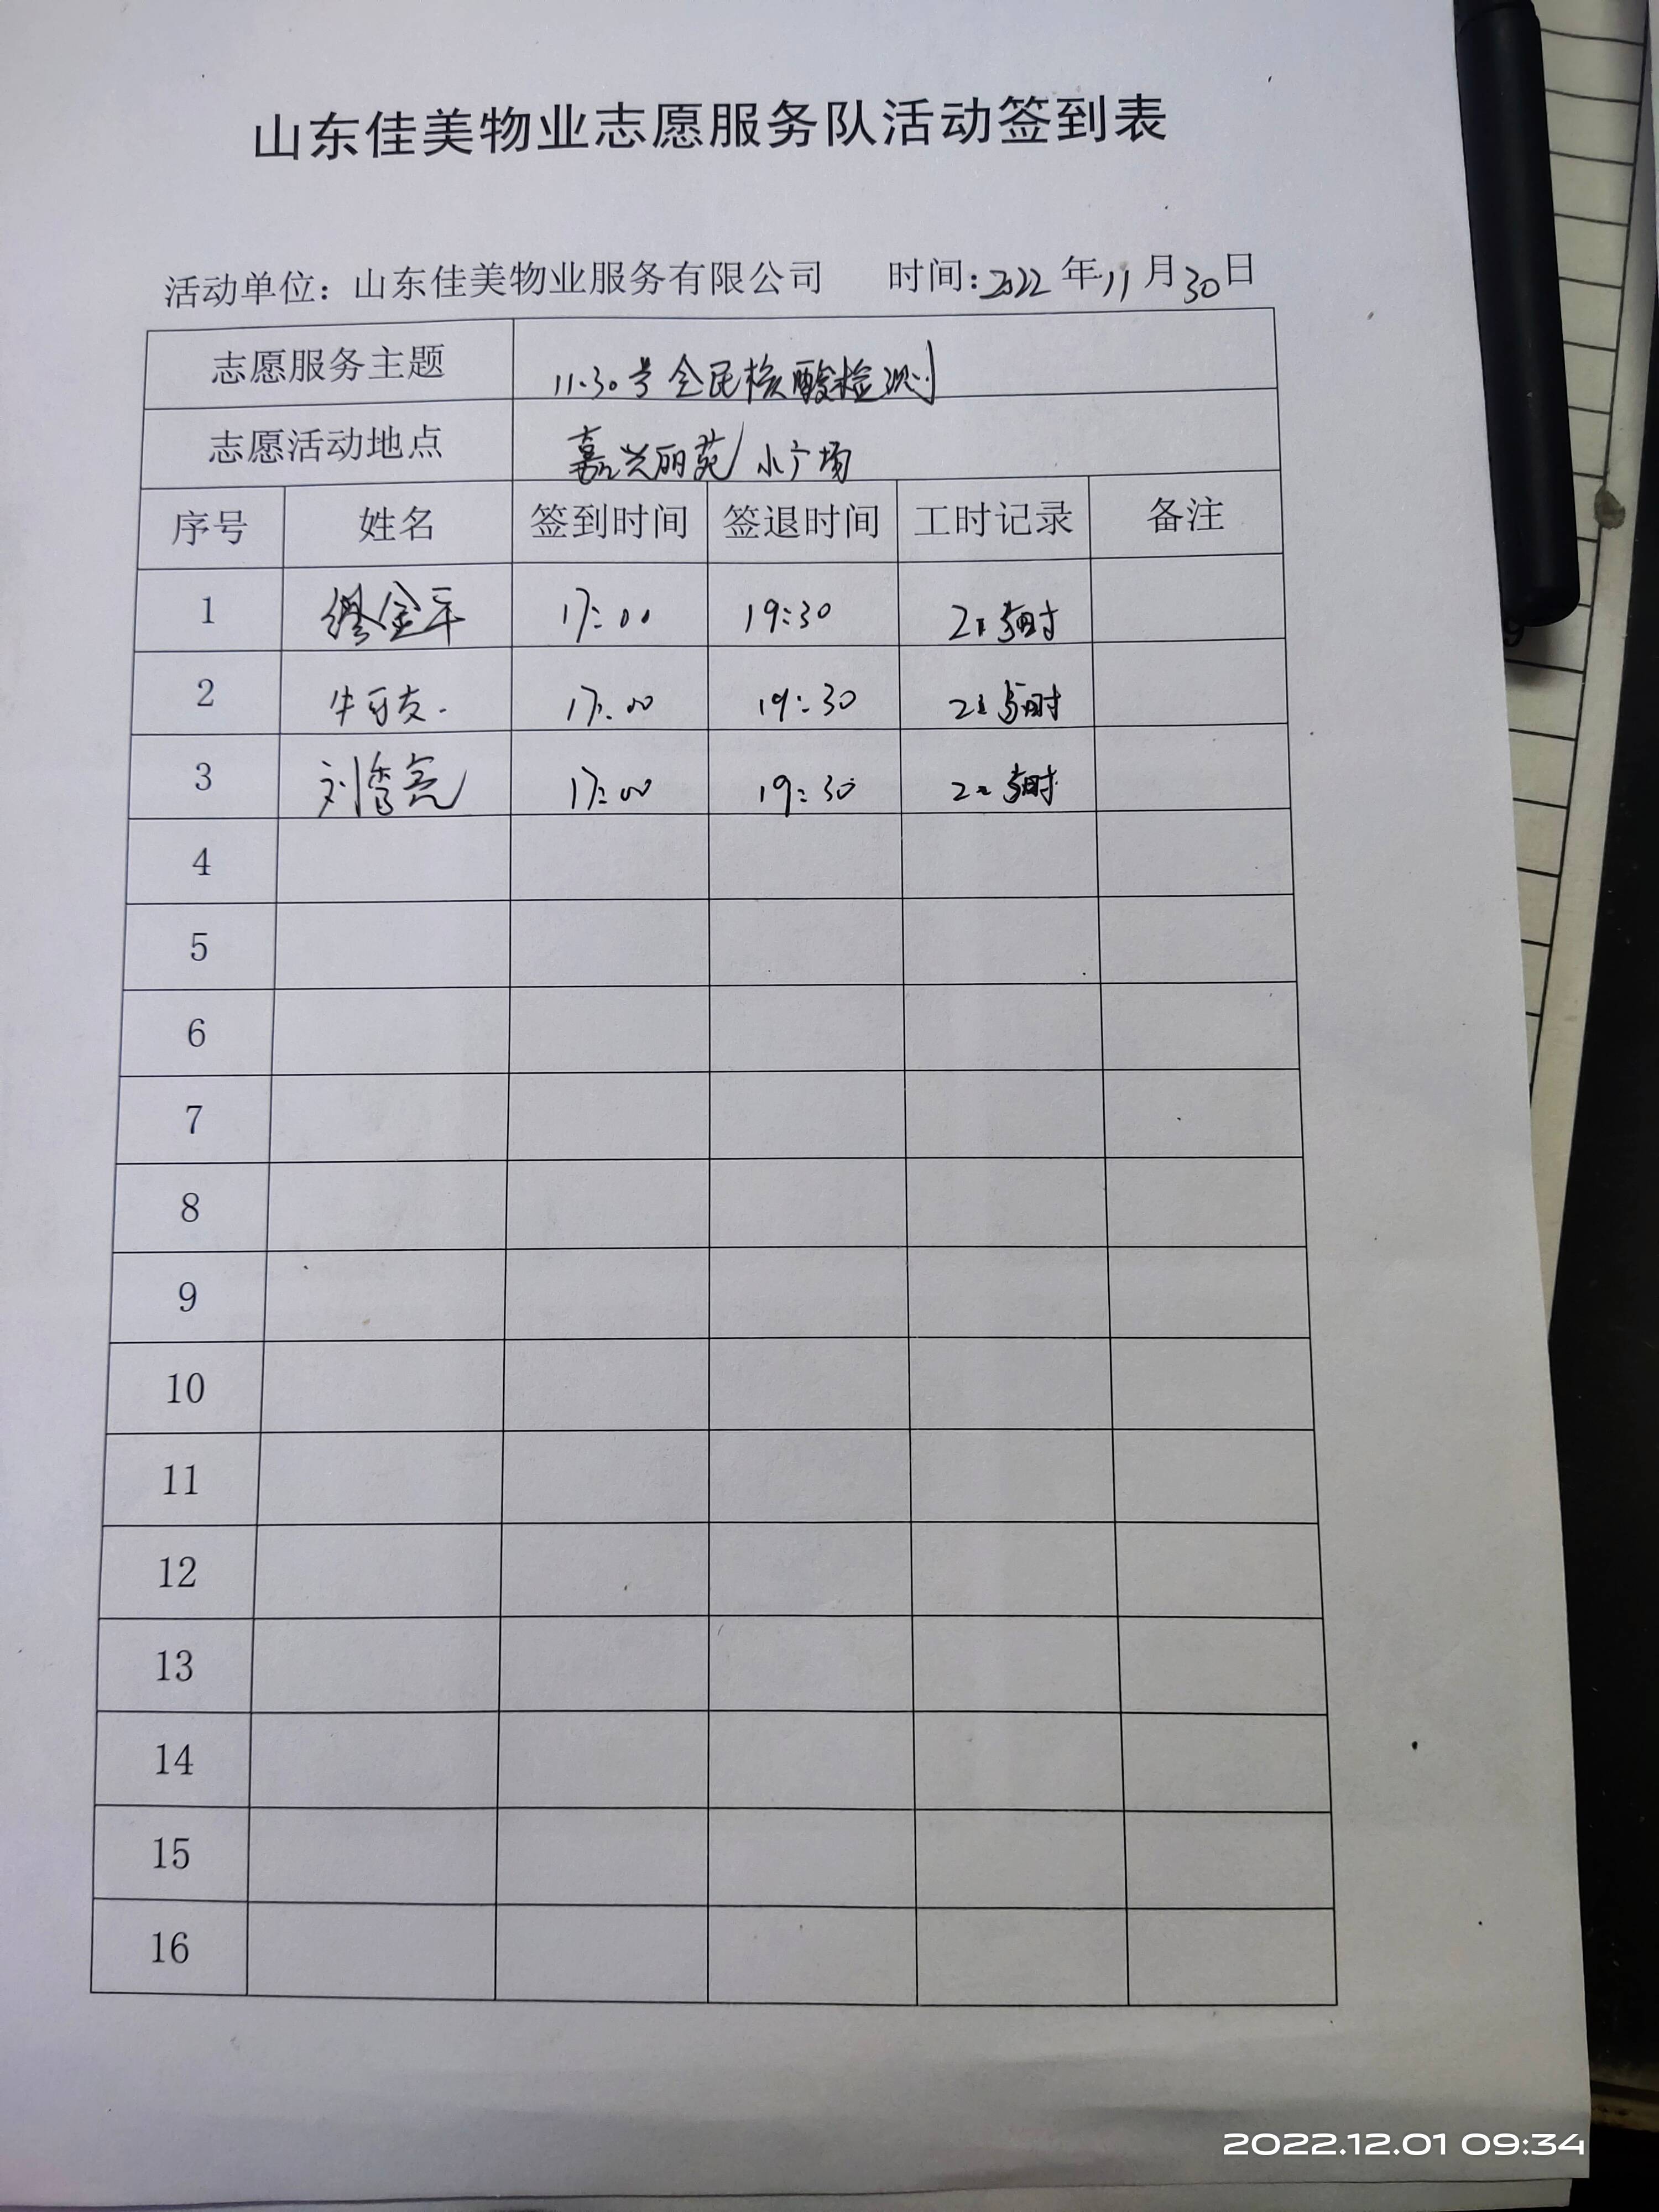 山东佳美物业志愿服务队活动签到表
活动单位：山东佳美物业服务有限公司 时间：2022年11月30日
志愿服务主题 11.30号全民核酸检测
志愿活动地点 嘉兴丽苑小广场
序号 姓名 签到时间 签退时间 工时记录 备注
1 缪金平 17:00 19:30
2 17:00 19:30
3 17:00 19:30
4
5
6
7
8
9
10
11
12
13
14
15
16
2022.12.01 09:34